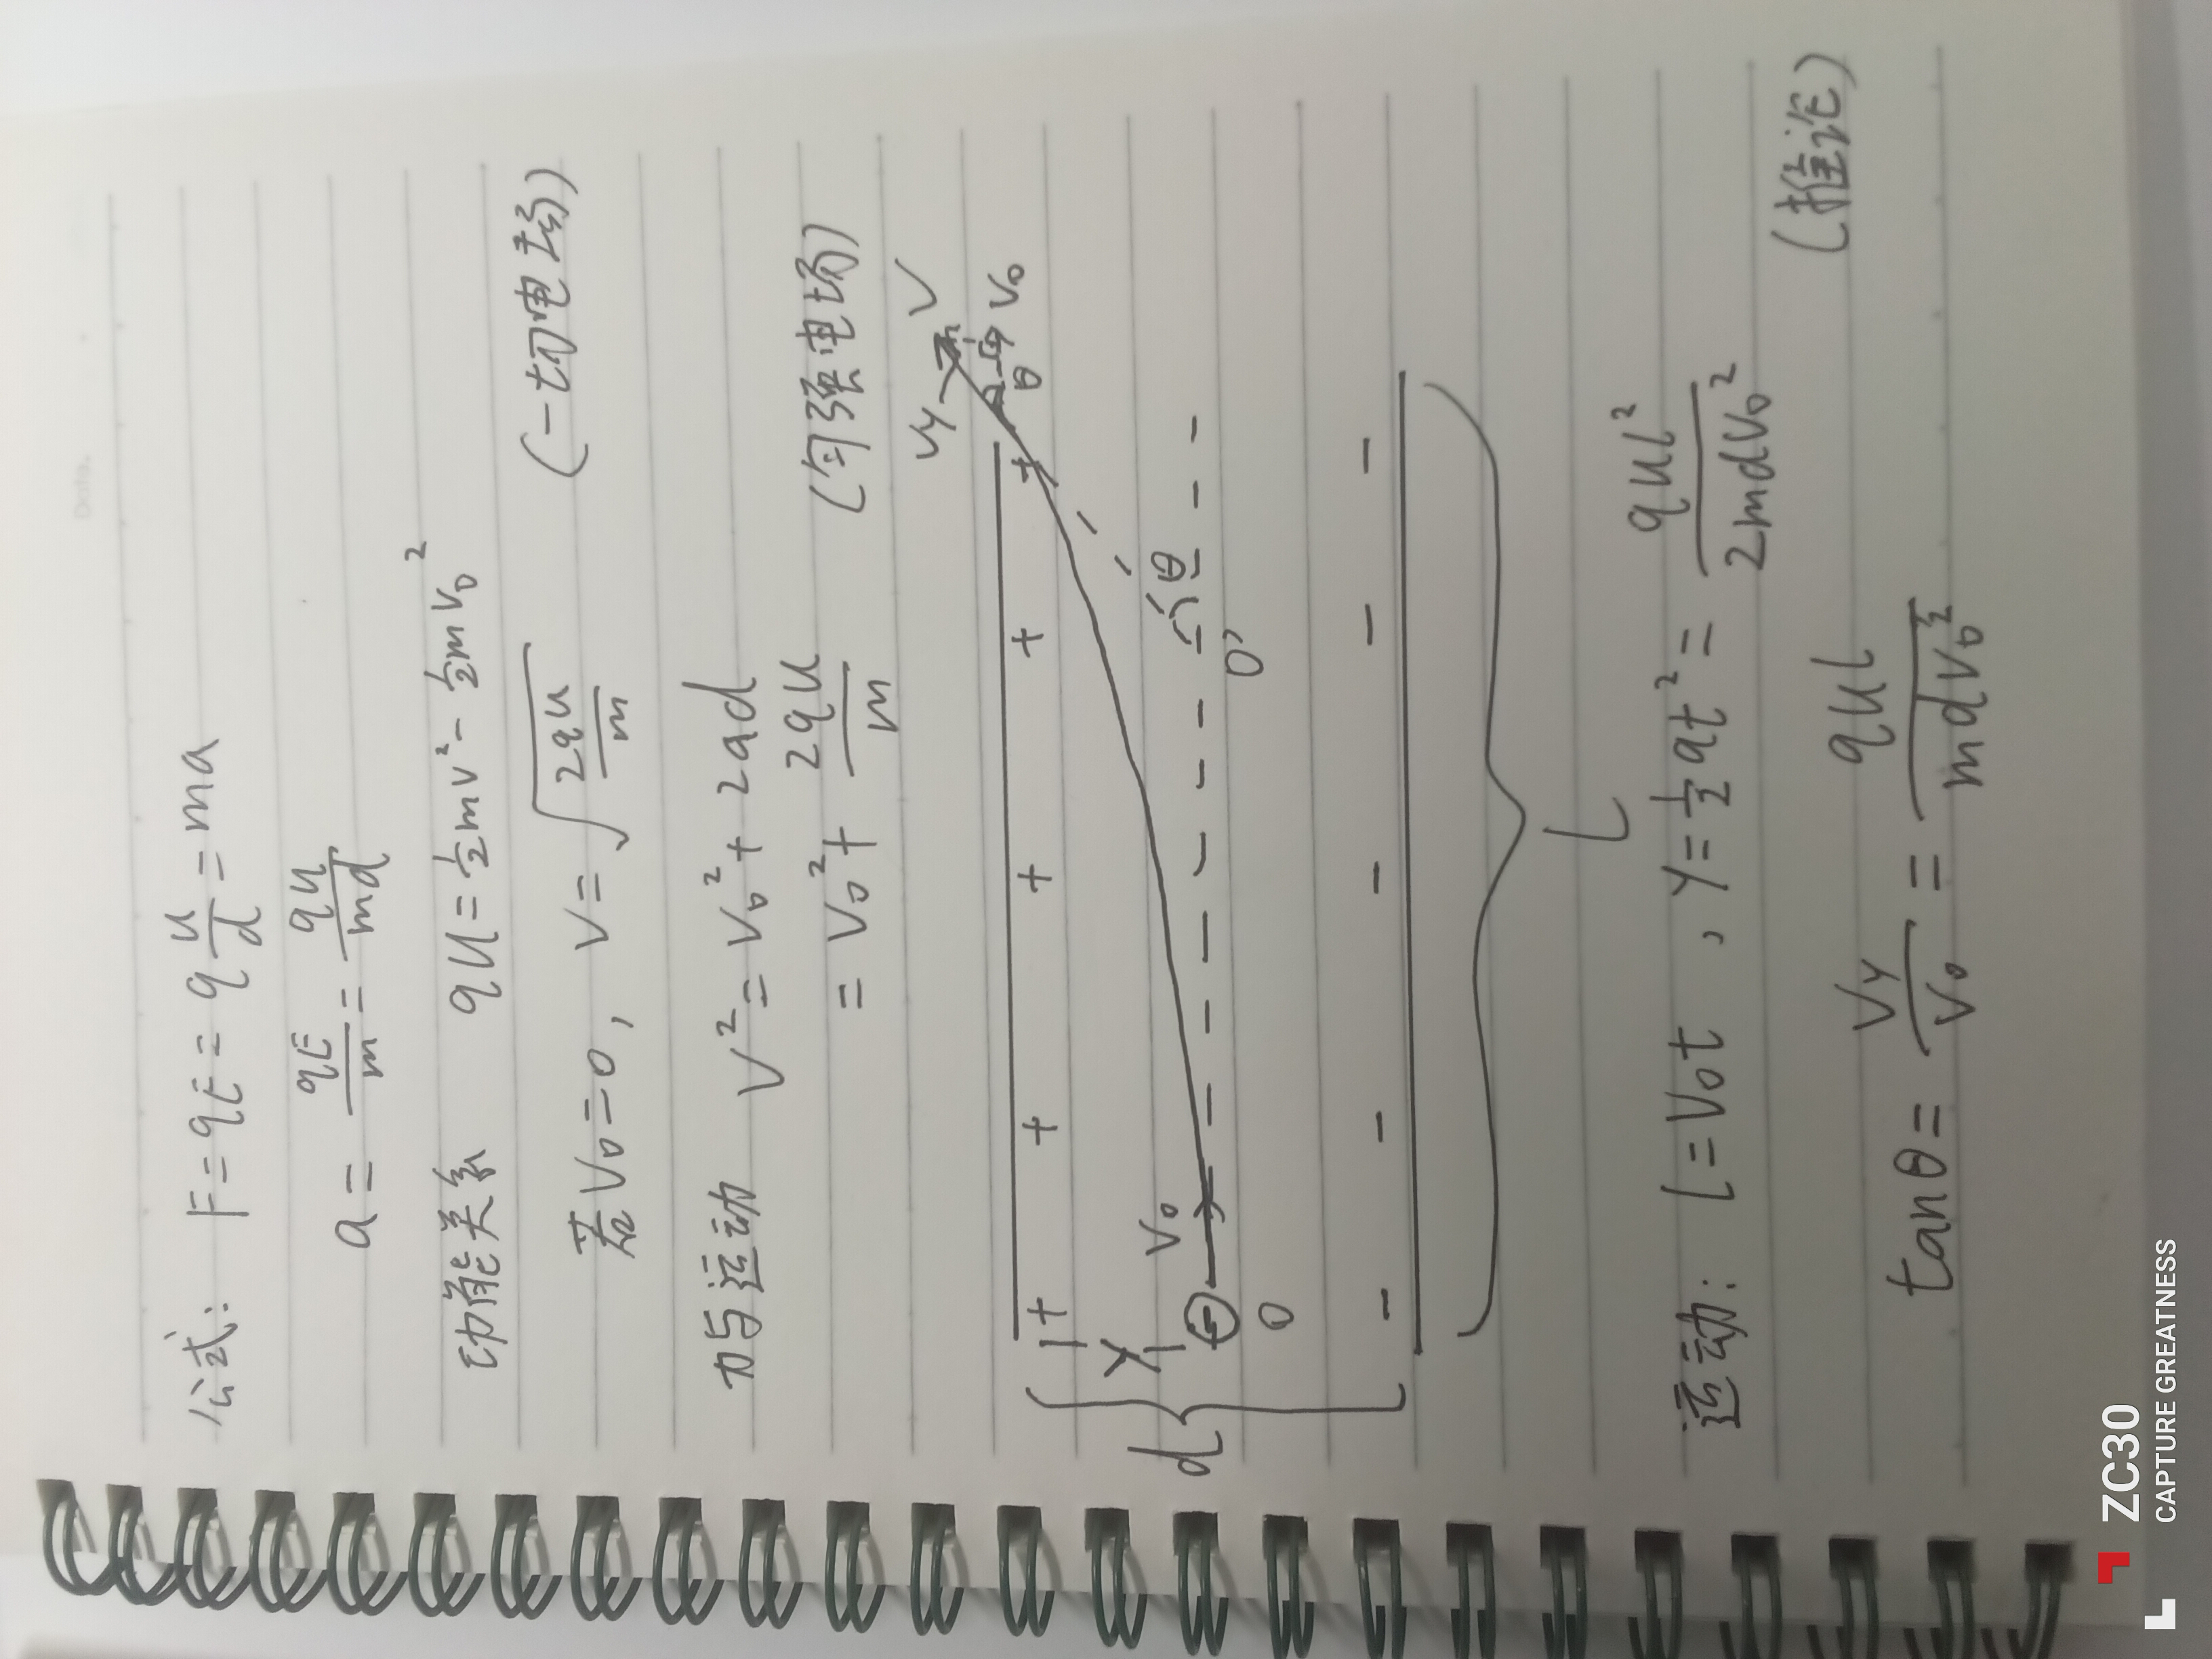 Date.
公式: F=qE=q u/d=ma
a=qE/m=qu/md
功能关系 qU=½mv²-½mv₀²
若V₀=0, v=√(2qu/m) (一切电场)
力与运动 V²=V₀²+2ad
=V₀²+2qU/m (匀强电场)
Vy V
θ V₀
+ + + + +
Y
d
V₀ θ
-
O O'
- - - - -
L
运动: L=V₀t , Y=½at²=qUL²/2mdV₀²
(推论)
tanθ=Vy/V₀=qUL/mdV₀²
ZC30
CAPTURE GREATNESS